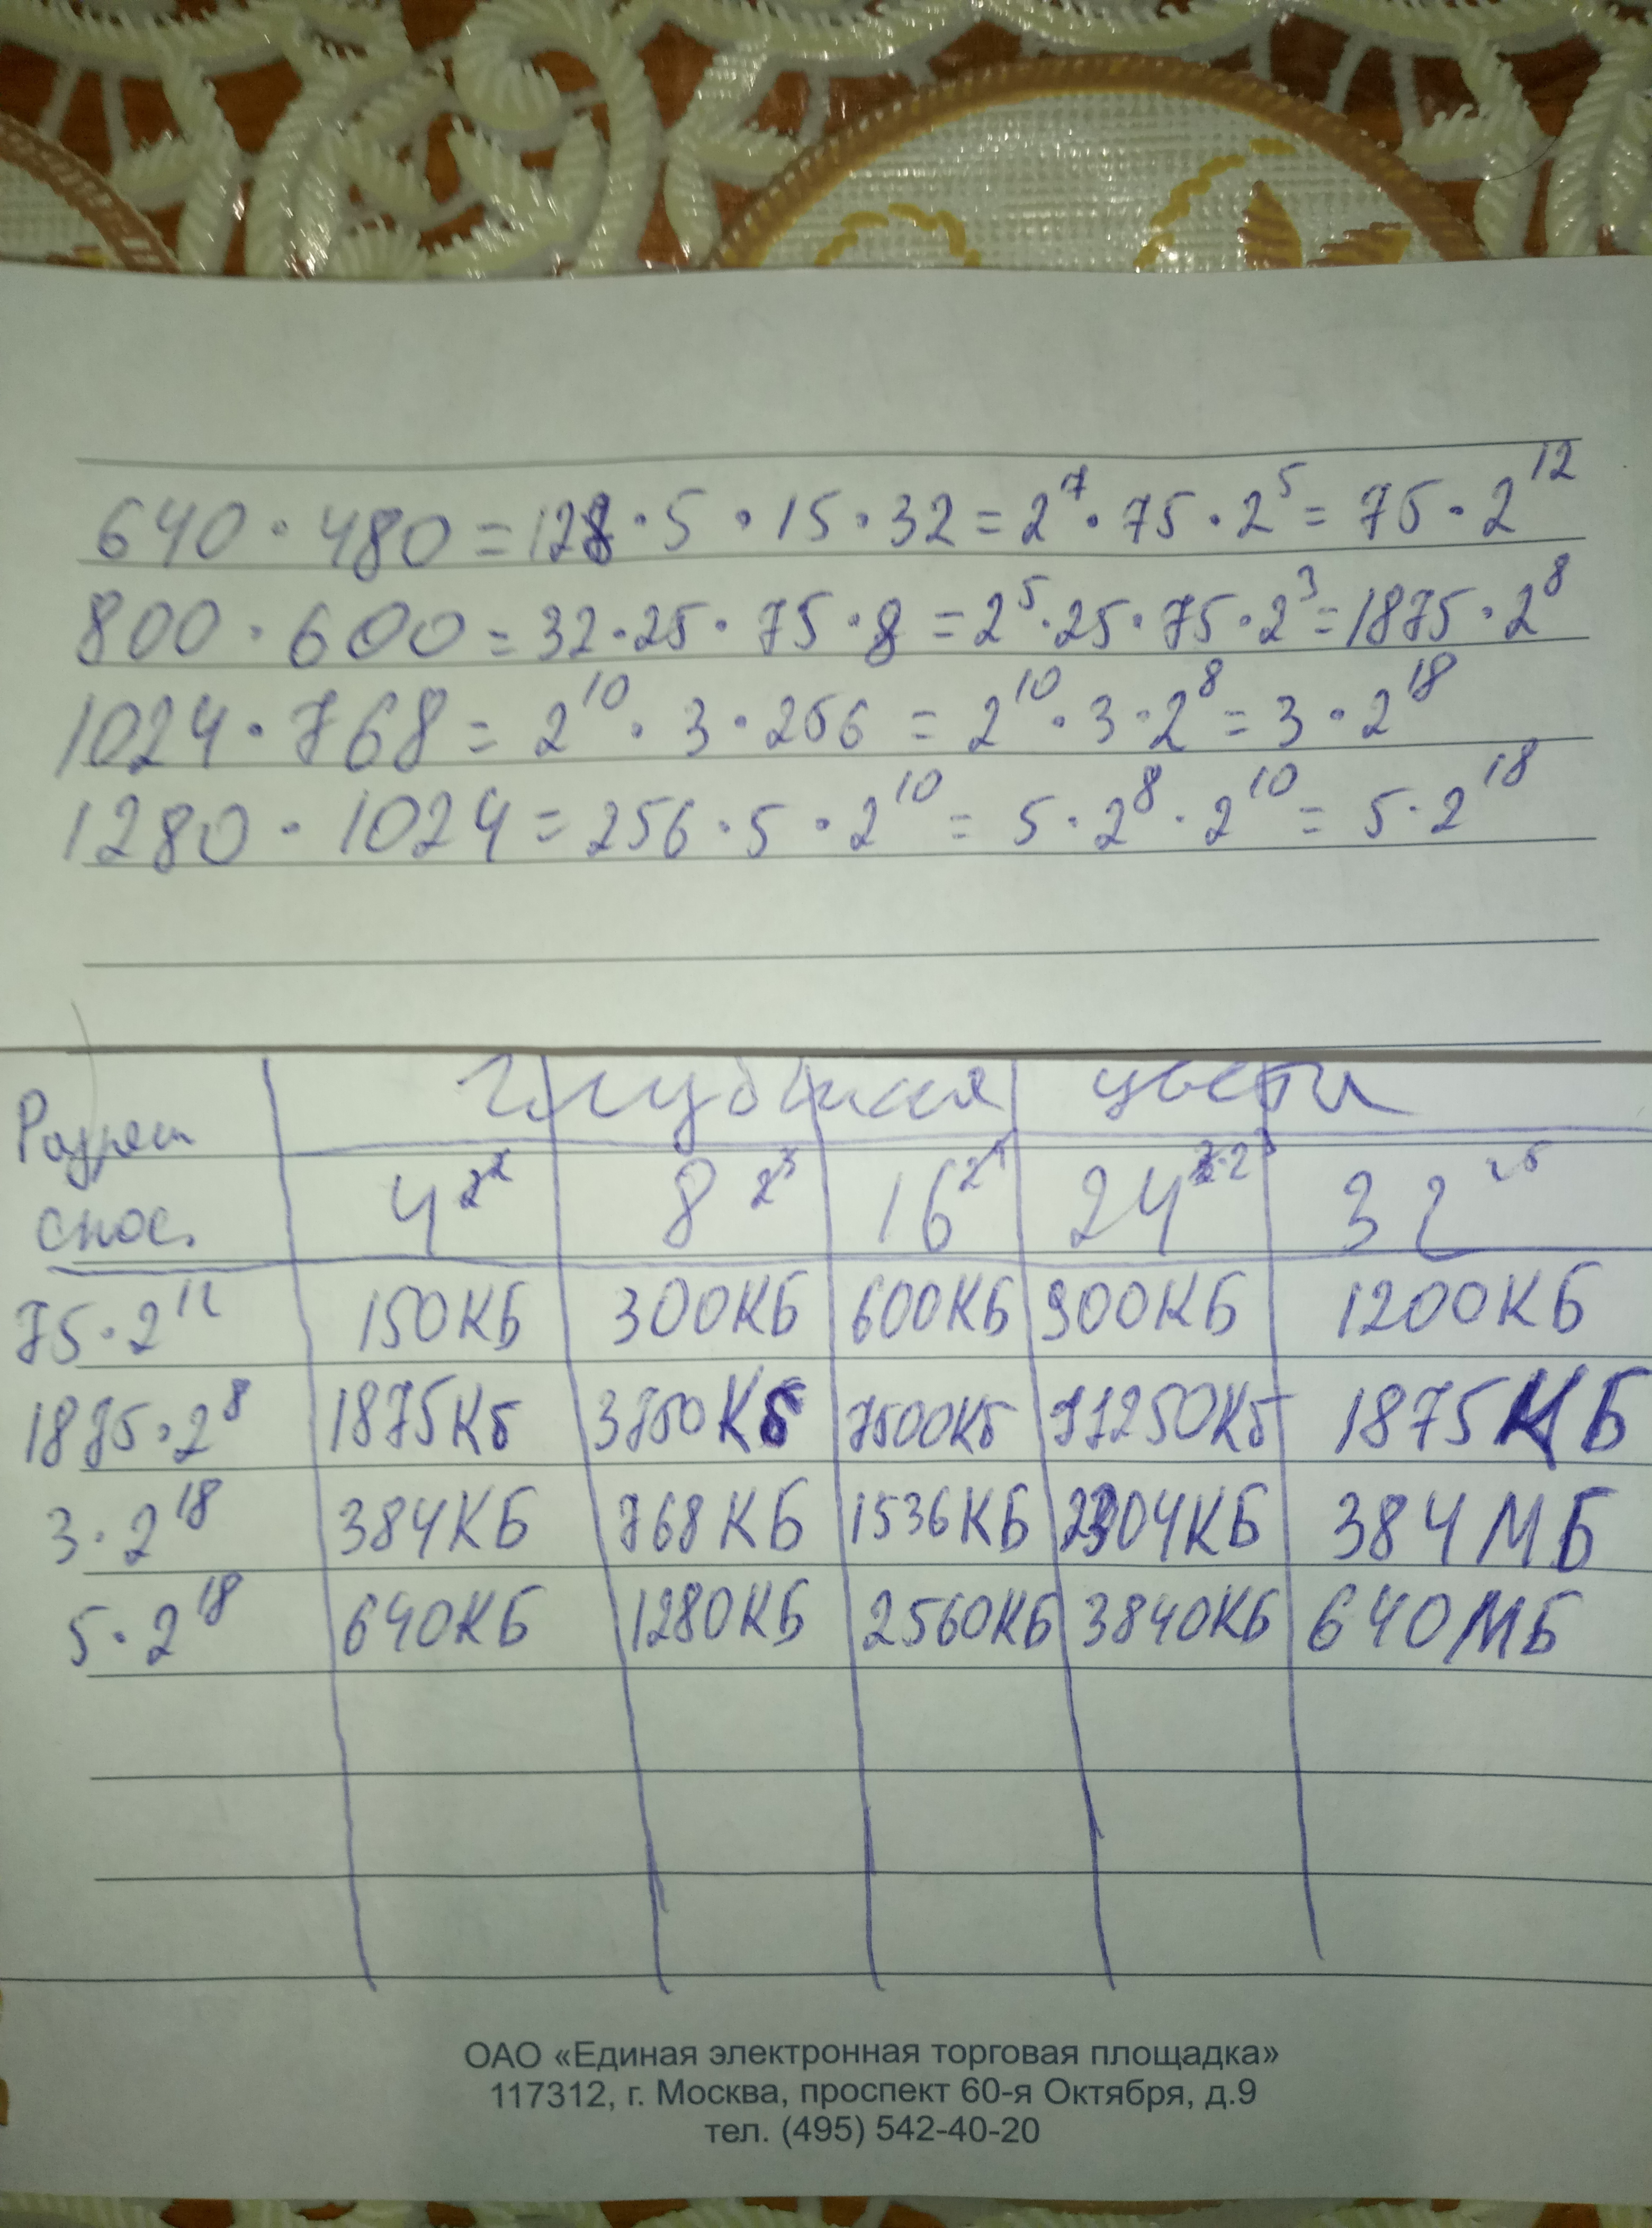 640 · 480 = 128 · 5 · 15 · 32 = 2⁷ · 75 · 2⁵ = 75 · 2¹²
800 · 600 = 32 · 25 · 75 · 8 = 2⁵ · 25 · 75 · 2³ = 1875 · 2⁸
1024 · 768 = 2¹⁰ · 3 · 256 = 2¹⁰ · 3 · 2⁸ = 3 · 2¹⁸
1280 · 1024 = 256 · 5 · 2¹⁰ = 5 · 2⁸ · 2¹⁰ = 5 · 2¹⁸
Глубина цвета
Разреш
спос.
4 2² 8 2³ 16 2⁴ 24 32 2⁵
75 · 2¹² 150КБ 300КБ 600КБ 900КБ 1200КБ
1875 · 2⁸ 1875Кб 3750Кб 7500Кб 11250Кб 1875МБ
3 · 2¹⁸ 384КБ 768КБ 1536КБ 2304КБ 384МБ
5 · 2¹⁸ 640КБ 1280КБ 2560КБ 3840КБ 640МБ
ОАО «Единая электронная торговая площадка»
117312, г. Москва, проспект 60-я Октября, д.9
тел. (495) 542-40-20